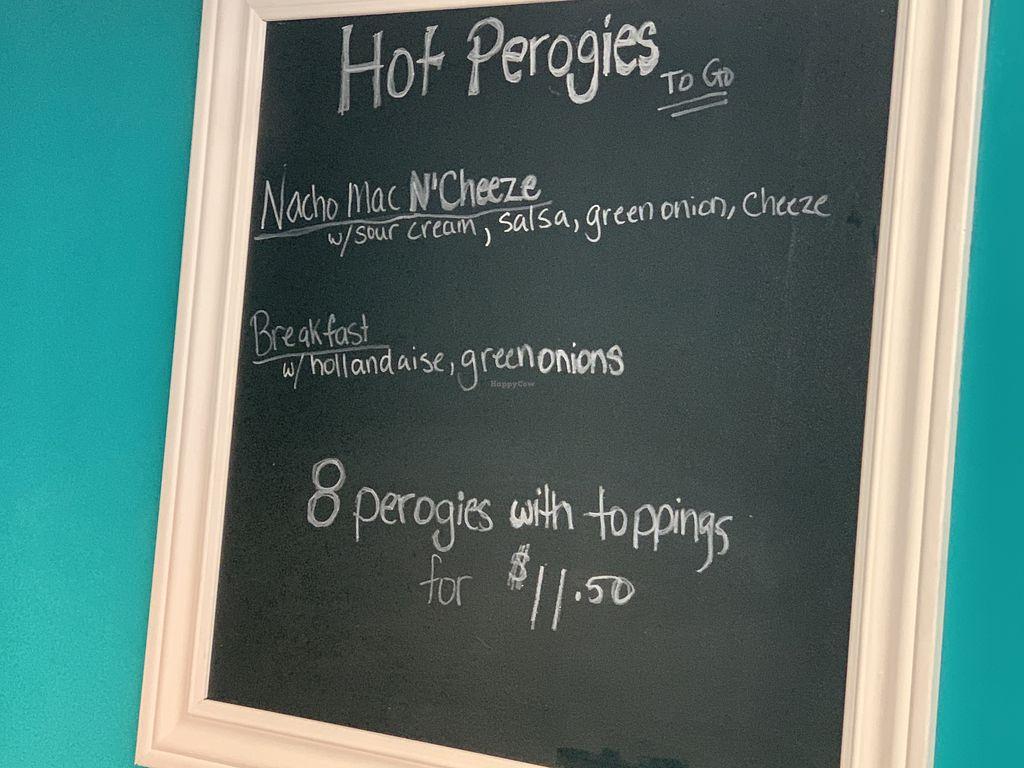 Hot Perogies
To Go
Nacho Mac N'Cheeze
w/sour cream, salsa, green onion, Cheeze
Breakfast
w/hollandaise, green onions
HappyCow
8 perogies with toppings
for $11.50